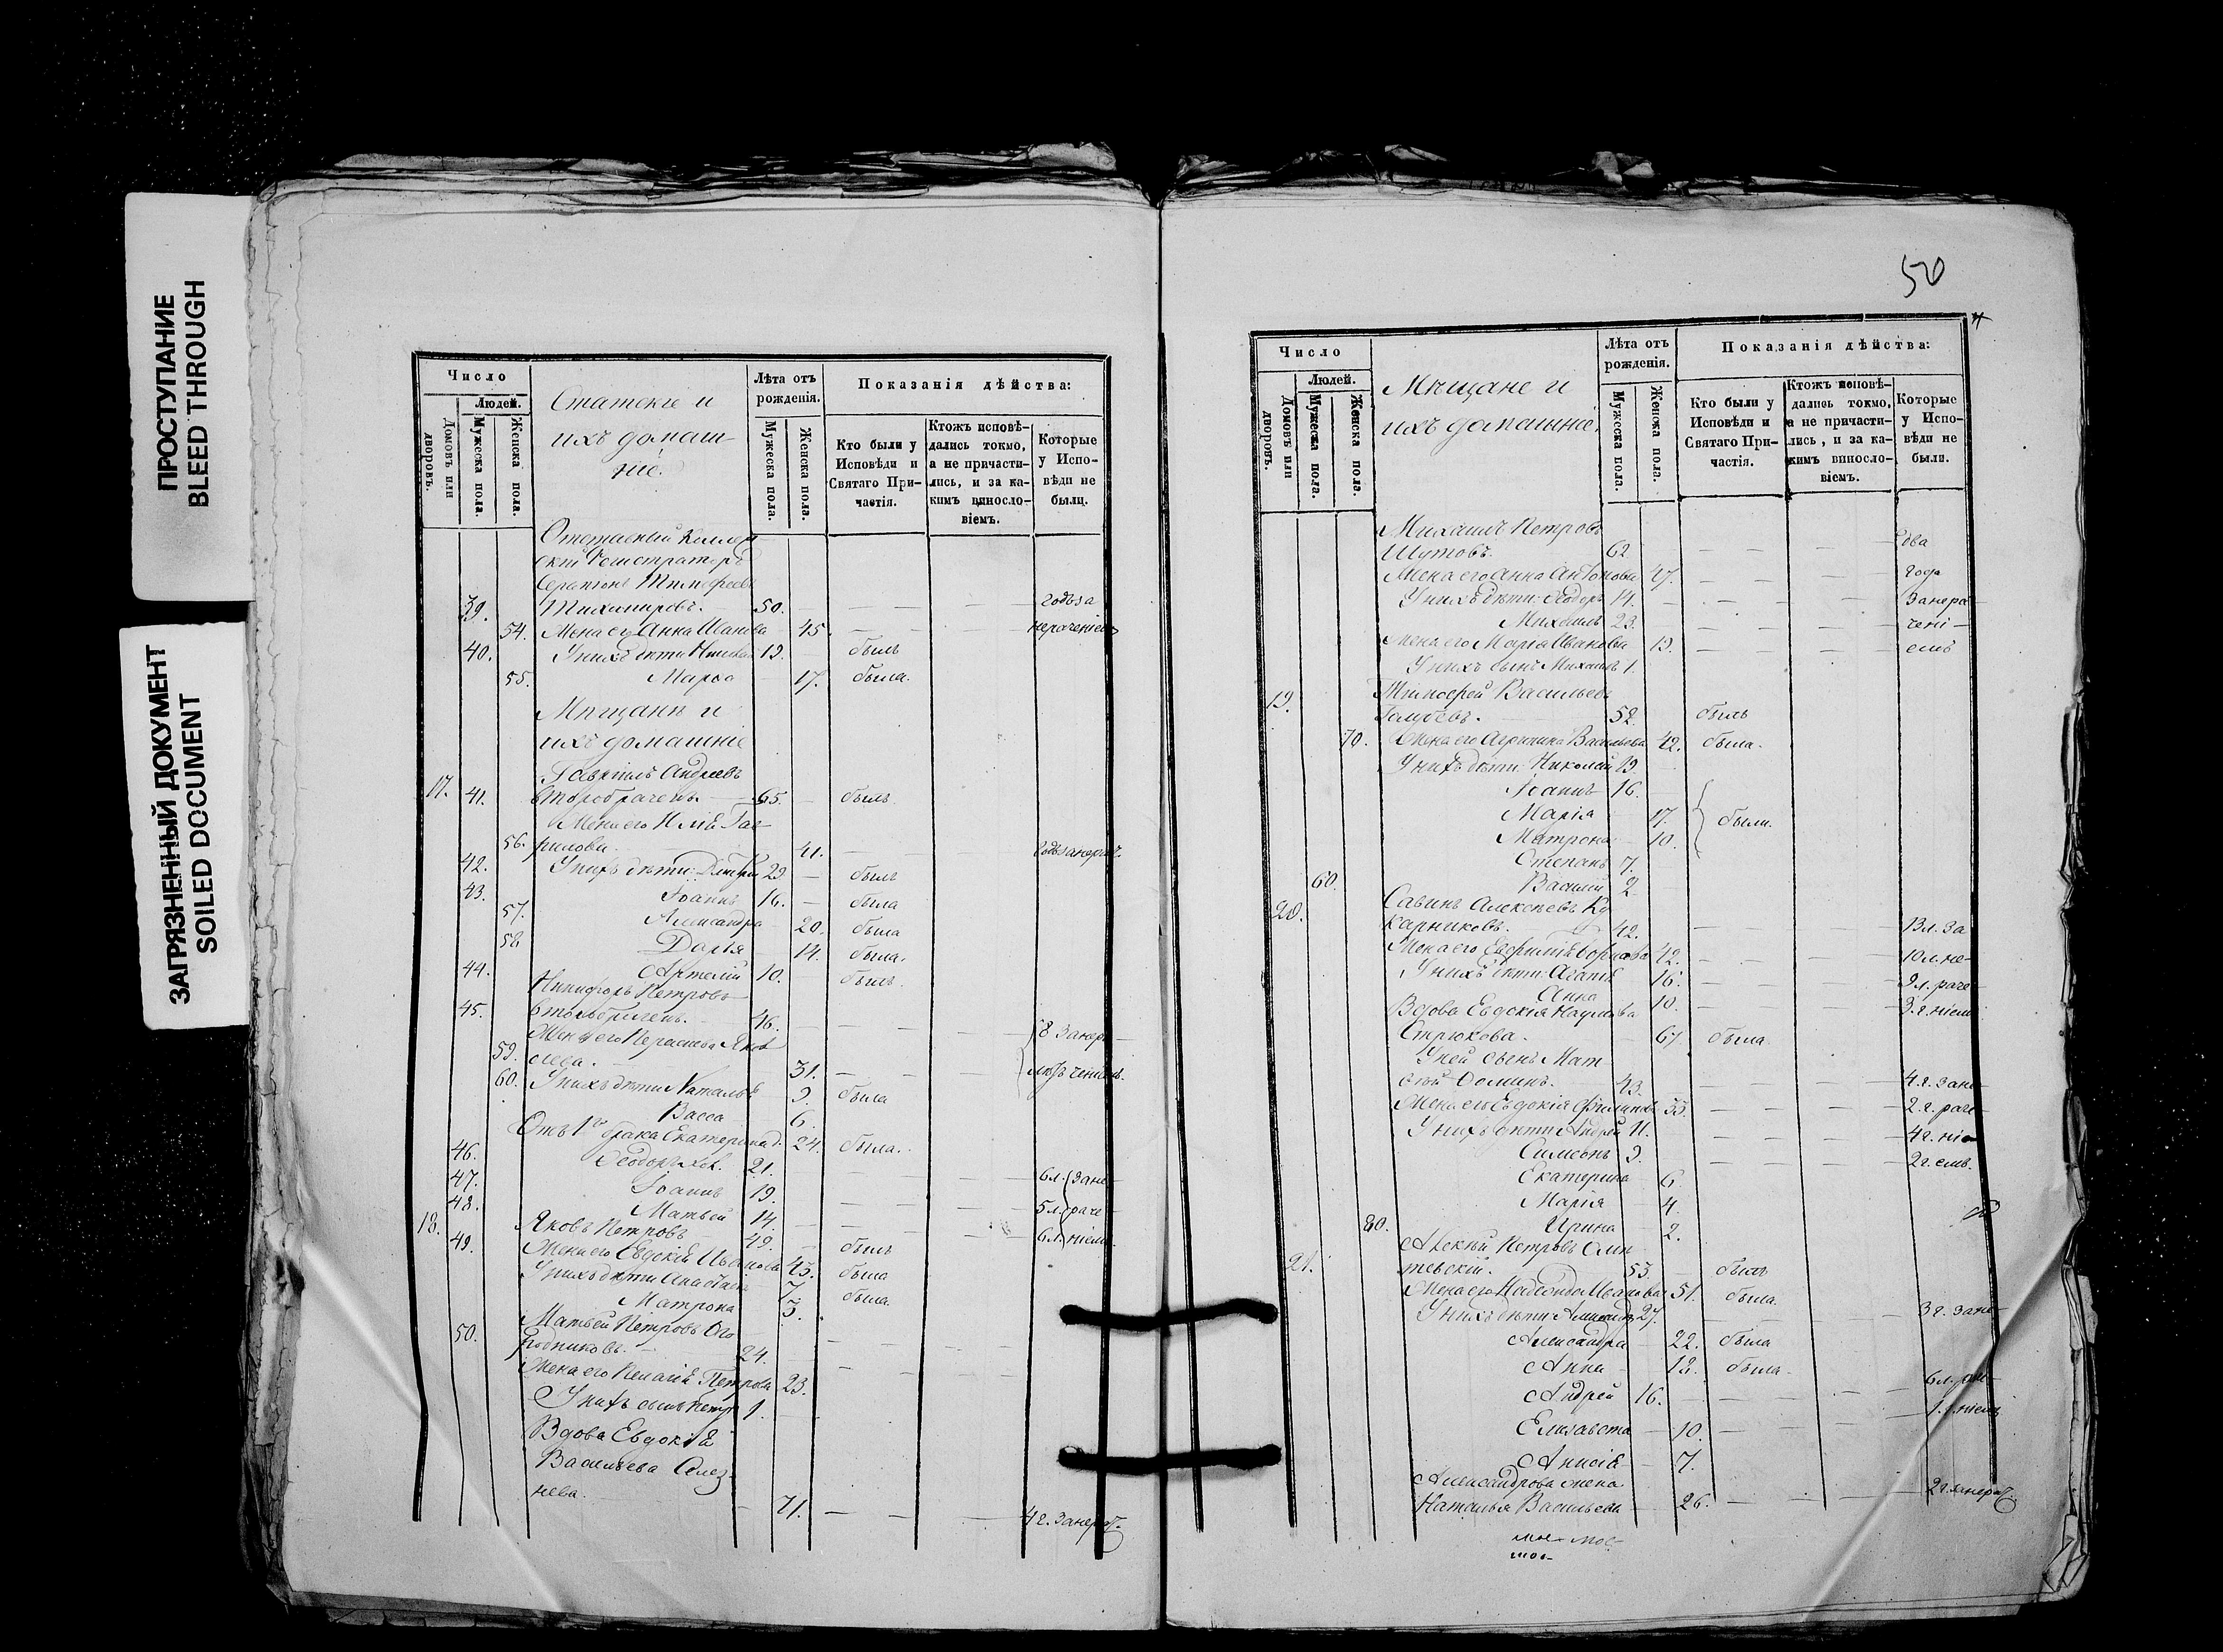 ПРОСТУПАНИЕ
BLEED THROUGH
ЗАГРЯЗНЕННЫЙ ДОКУМЕНТ
SOILED DOCUMENT
Число
Людей.
Домовъ или дворовъ.
Мужеска пола.
Женска пола.
Статскіе и
ихъ домаш-
ніе.
Лѣта отъ рожденія.
Мужеска пола.
Женска пола.
Показанія дѣйства:
Кто были у Исповѣди и Святаго При-частія.
Ктожъ исповѣ-дались токмо, а не причасти-лись, и за ка-кимъ винослo-віемъ.
Которые у Испо-вѣди не были.
Отставный Коллеж
скій Регистраторъ
Тимофеевъ
39. Тихомировъ. 50. — — — годъ за
54. Жена его Анна Иванова 45. — — — нераченіемъ
40. У нихъ дѣти Николай 19. — былъ
55. Марѳа 17. была.
Мѣщане и
ихъ домашніе
Гавріилъ Андреевъ
17. 41. второбраченъ. 65. — былъ
Жена его Гав-
56. рилова. 41. —
42. У нихъ дѣти: Дмитрій 29 — былъ
43. Іоаннъ 16. — была
57. Александра 20. была
58 Дарья 14. была.
44. Артемій 10. былъ.
Никифоръ Петровъ
45. 46. — —
Жена его Яков
59. лева. 31. — —
60. У нихъ дѣти Наталья 9. была
Васса 6.
Отъ 1го брака Екатерина 24. была.
46. Ѳеодоръ 21. 6 л. зане-
47. Іоаннъ 19. — — — 5 л. раче-
48. Матвей 14. — — — 6 л. ніемъ.
18. Яковъ Петровъ 49. былъ
49. Жена его Евдокія Иванова 43. была
У нихъ дѣти Анастасія 7. была.
Матрона 3.
Матвей Петровъ Ого
50. родниковъ. 24. —
Жена его Пелагія Петрова 23.
У нихъ сынъ Петръ 1.
Вдова Евдокія
Васильева Селез-
нева. 71. — — — 4 г. занерач.
50
Число
Людей.
Домовъ или дворовъ.
Мужеска пола.
Женска пола.
Мѣщане и
ихъ домашніе.
Лѣта отъ рожденія.
Мужеска пола.
Женска пола.
Показанія дѣйства:
Кто были у Исповѣди и Святаго При-частія.
Ктожъ исповѣ-дались токмо, а не причасти-лись, и за ка-кимъ винослo-віемъ.
Которые у Испо-вѣди не были.
Михаилъ Петровъ
Шутовъ. 62. — — —
Жена его Анна Антонова 47. — — — года
У нихъ дѣти: Ѳеодоръ 14. — — — Занера-
Михаилъ 23. — — — чені-
Жена его Марія Иванова 19. — — — емъ
У нихъ сынъ Михаилъ 1.
Тимофей Васильевъ
19. Голубевъ. 52. былъ
70. Жена его Агрипина Васильева 42. была.
У нихъ дѣти: Николай 19.
Іоаннъ 16.
Марія 17. были.
Матрона 10.
Степанъ 7.
60. Василій 2.
Савинъ Алексѣевъ Ку
20. карниковъ. 42. — — — 13 л. за
Жена его Евфимія 42. — — — 10 л. не-
У нихъ дѣти: Агапія 16. — — — 9 л. раче-
Анна 10. — — — 3 г. ніемъ
Вдова Евдокія Наумова
Стрюкова. 67 была.
У ней сынъ Мат
вѣй Фоминъ. 43. — — — 4 г. зане
Жена его Евдокія Филипова 33. — — — 2 г. раче-
У нихъ дѣти Андрей 11. — — — 4 г. ніе
Симеонъ 9. — — — 2 г. емъ.
Екатерина 6.
Марія 4.
80. Ирина 2.
Алексѣй Петровъ Оли
21. тевскій. 53. былъ
Жена его Надежда Иванова 51. была.
У нихъ дѣти Александръ 27. 3 г. зане-
Александра 22. была
Анна 18. была.
Андрей 16. — — — 6 л. раче-
Елизавета 10. —
Анисія 7.
Александрова жена
Наталья Васильева 26. — — — 2 г. занерач.